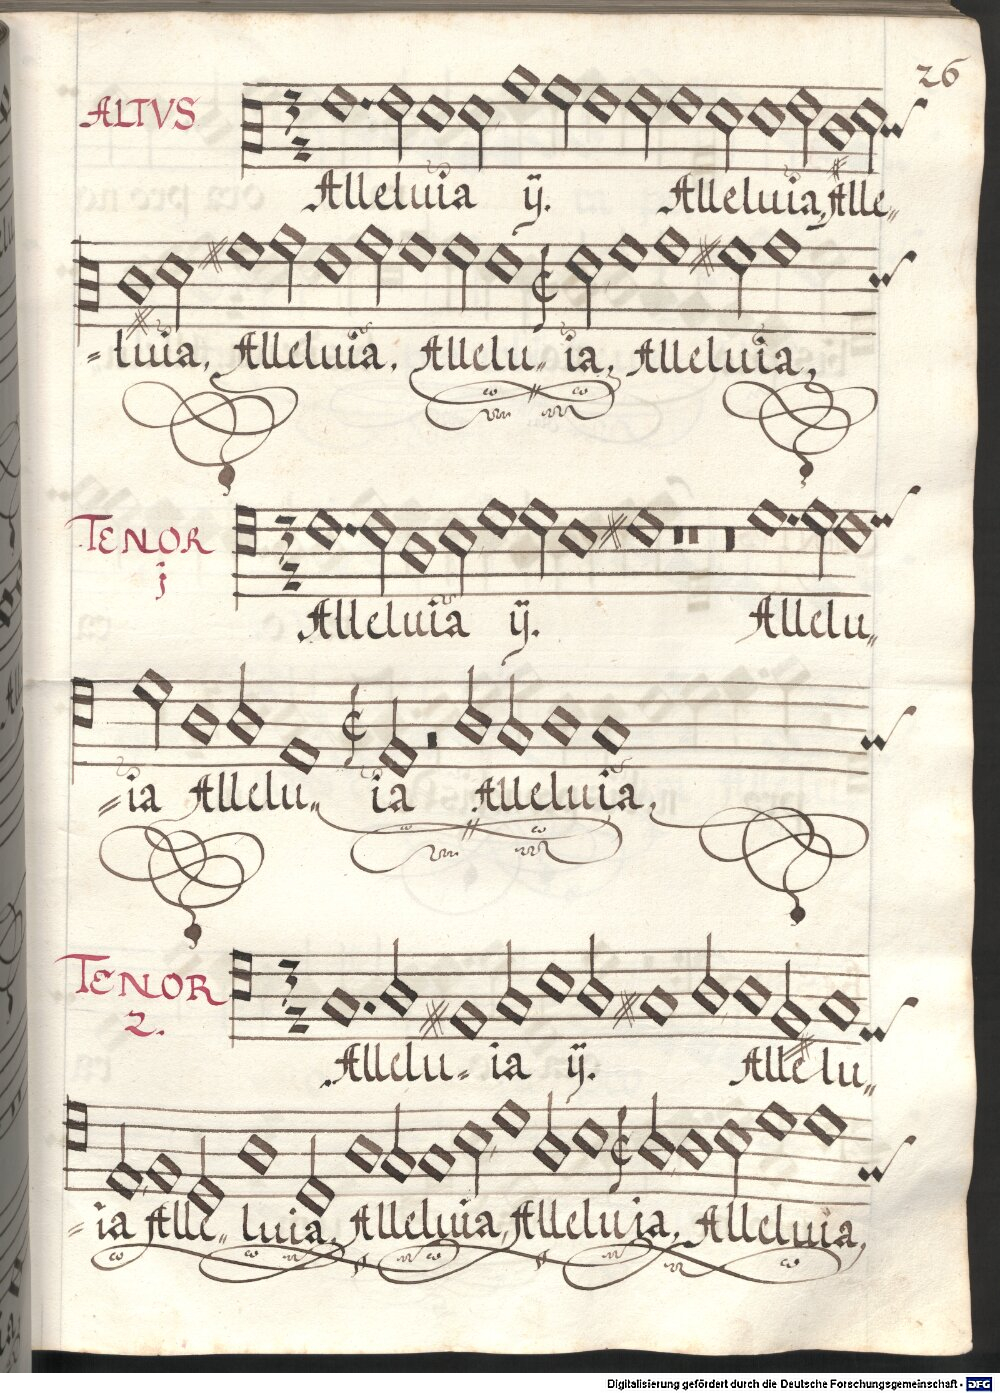 26
ALTVS
Alleluia ij. Alleluia, Alle„
=luia, Alleluia, Allelu„ ia, Alleluia,
TENOR
j
Alleluia ij. Allelu„
=ia Allelu„ ia Alleluia,
TENOR
2.
Allelu= ia ij. Allelu„
=ia Alle„ luia, Alleluia, Alleluia, Alleluia,
Digitalisierung gefördert durch die Deutsche Forschungsgemeinschaft - DFG